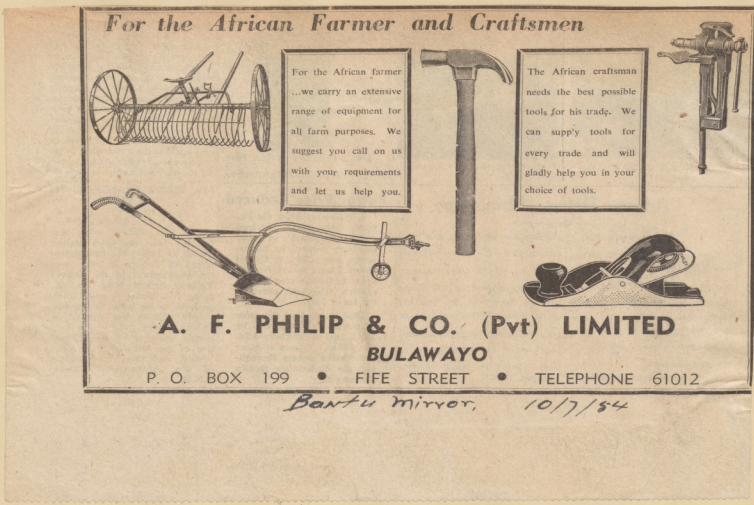 For the African Farmer and Craftsmen
For the African farmer
...we carry an extensive
range of equipment for
all farm purposes. We
suggest you call on us
with your requirements
and let us help you.
The African craftsman
needs the best possible
tools for his trade. We
can supp'y tools for
every trade and will
gladly help you in your
choice of tools.
A. F. PHILIP & CO. (Pvt) LIMITED
BULAWAYO
P. O. BOX 199 • FIFE STREET • TELEPHONE 61012
Bantu Mirror, 10/7/54